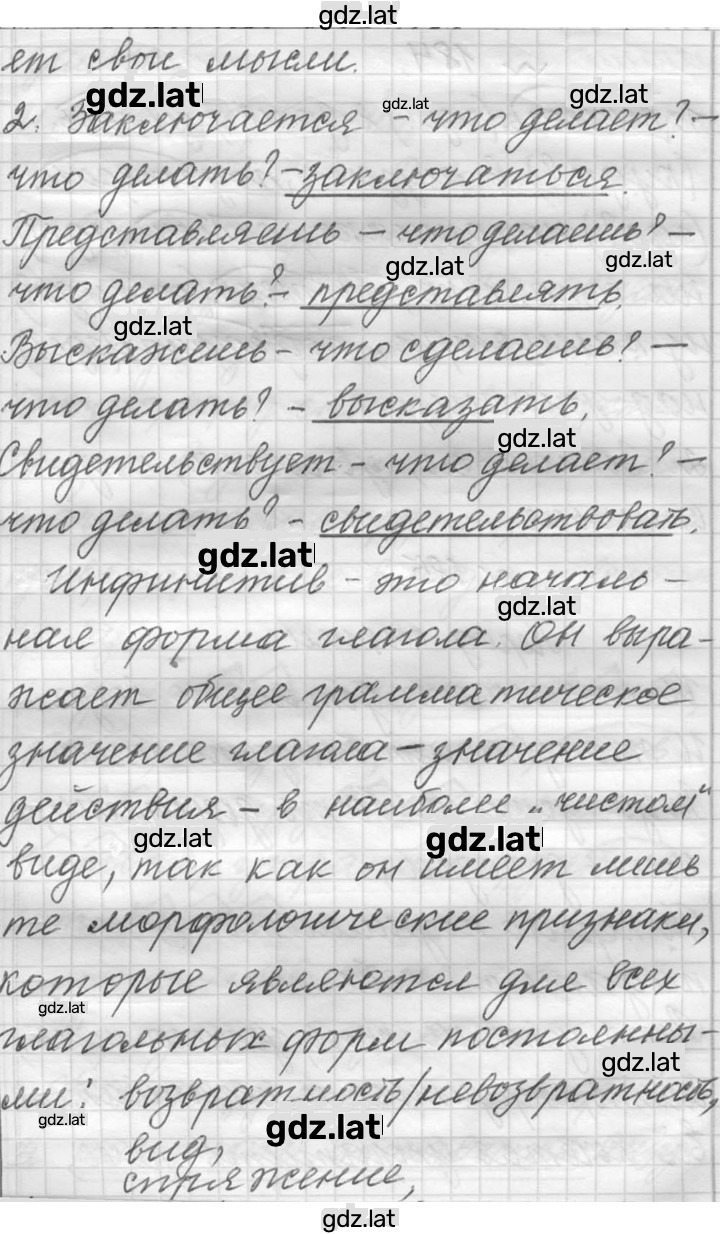 gdz.lat
ет свои мысли.
gdz.lat gdz.lat gdz.lat
2. Заключается – что делает? –
что делать? – заключаться.
Представляешь – что делаешь? –
gdz.lat gdz.lat
что делать? – представлять.
gdz.lat
Выскажешь – что сделаешь? –
что делать? – высказать.
gdz.lat
Свидетельствует – что делает? –
что делать? – свидетельствовать.
gdz.lat
Инфинитив – это началь-
gdz.lat
ная форма глагола. Он выра-
жает общее грамматическое
значение глагола – значение
действия – в наиболее „чистом“
gdz.lat gdz.lat
виде, так как он имеет лишь
те морфологические признаки,
которые являются для всех
gdz.lat
глагольных форм постоянны-
gdz.lat
ми: возвратность/невозвратность,
gdz.lat gdz.lat
вид,
спряжение,
gdz.lat